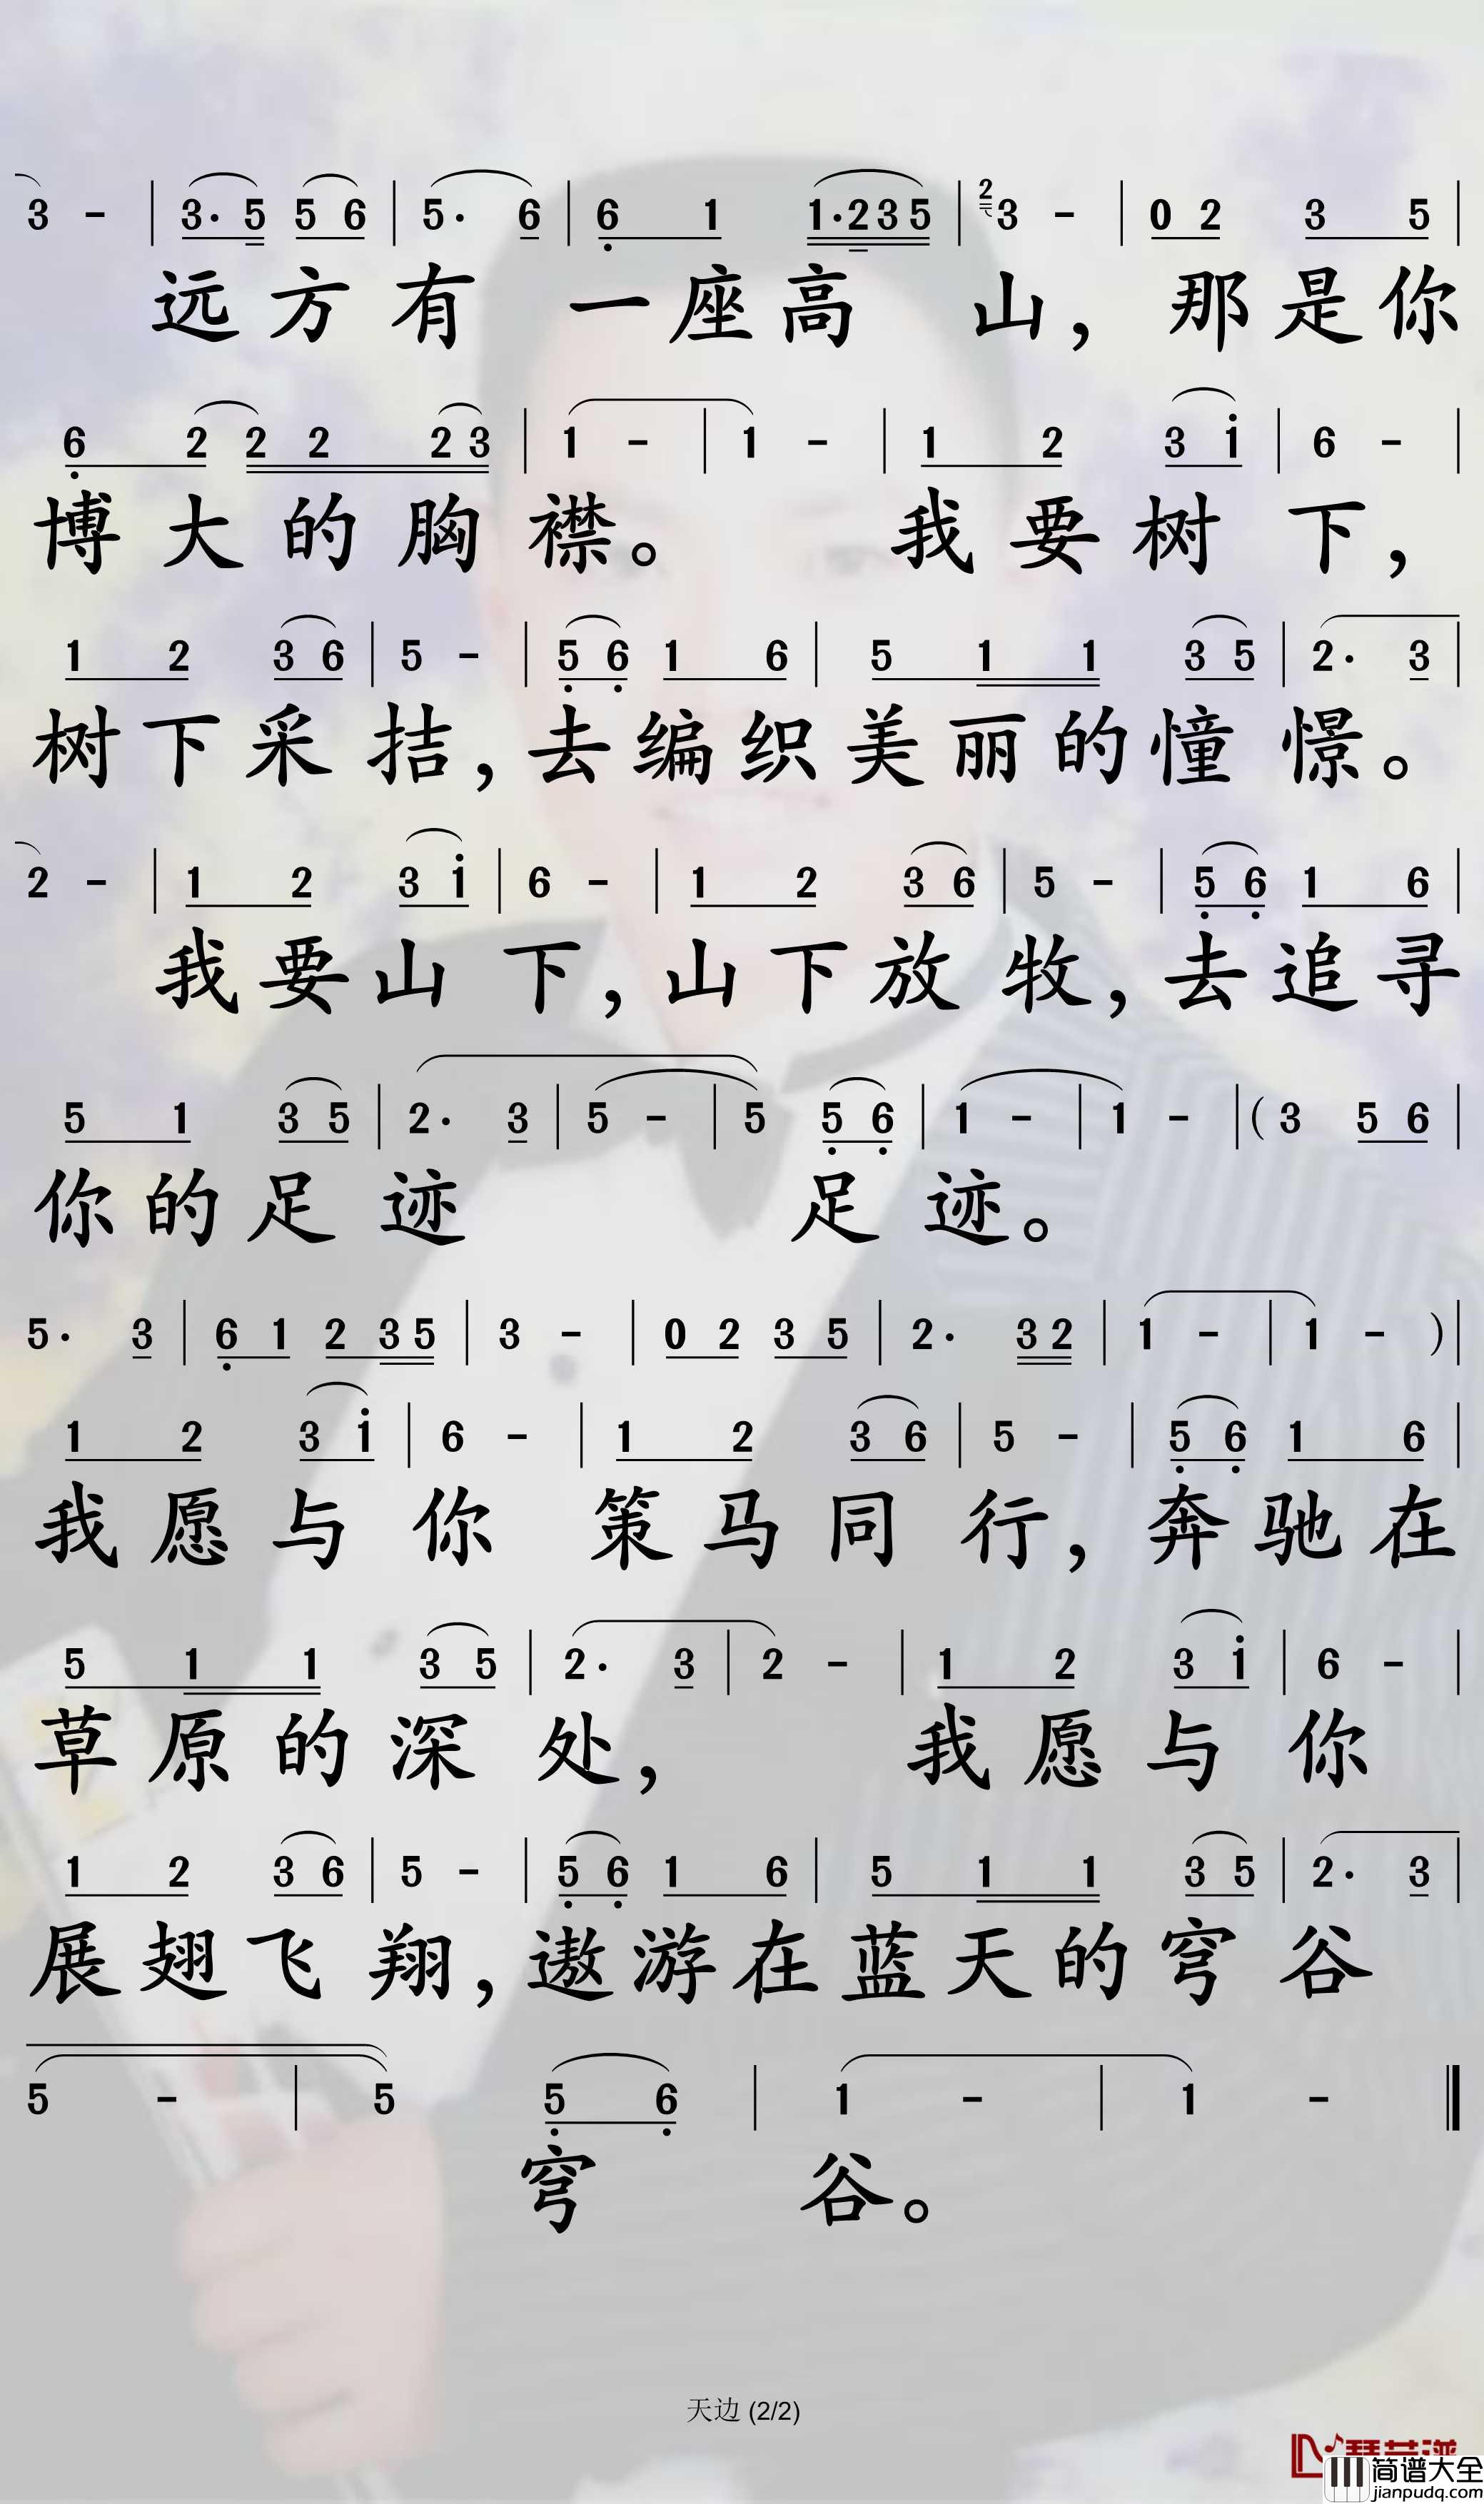 3 - | 3· 5 5 6 | 5· 6 | 6 1 1·2 3 5 | 2 3 - | 0 2 3 5 |
远方有 一座高 山，那是你
6 2 2 2 2 3 | 1 - | 1 - | 1 2 3 i | 6 - |
博大的胸襟。 我要树下，
1 2 3 6 | 5 - | 5 6 1 6 | 5 1 1 3 5 | 2· 3 |
树下采拮，去编织美丽的憧憬。
2 - | 1 2 3 i | 6 - | 1 2 3 6 | 5 - | 5 6 1 6 |
我要山下，山下放牧，去追寻
5 1 3 5 | 2· 3 | 5 - | 5 5 6 | 1 - | 1 - | (3 5 6 |
你的足迹 足迹。
5· 3 | 6 1 2 3 5 | 3 - | 0 2 3 5 | 2· 3 2 | 1 - | 1 - )|
1 2 3 i | 6 - | 1 2 3 6 | 5 - | 5 6 1 6 |
我愿与你 策马同行，奔驰在
5 1 1 3 5 | 2· 3 | 2 - | 1 2 3 i | 6 - |
草原的深处， 我愿与你
1 2 3 6 | 5 - | 5 6 1 6 | 5 1 1 3 5 | 2· 3 |
展翅飞翔，遨游在蓝天的穹谷
5 - | 5 5 6 | 1 - | 1 - ‖
穹 谷。
天边 (2/2)
简谱大全
jianpudq.com